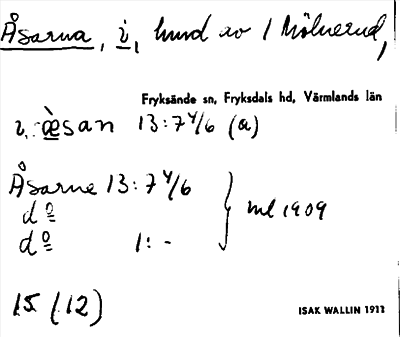 Åsarna, i, hund av 1 Mölnerud,
Fryksände sn, Fryksdals hd, Värmlands län
i, æ̀san 13:7 4/6 (a)
Åsarne 13:7 4/6
do
do 1: -
ml 1909
15 (12)
ISAK WALLIN 1922